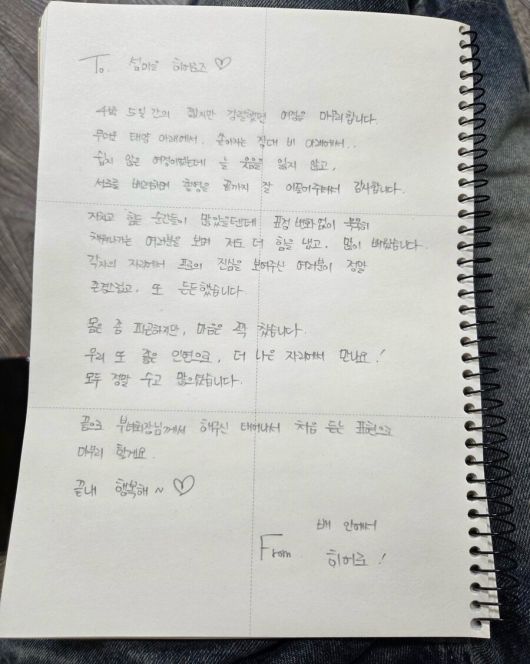 To. 섬마을 히어로즈 ♡
4박 5일간의 짧지만 강렬했던 여정을 마무리합니다.
무더운 태양 아래에서, 쏟아지는 장대 비 아래에서..
쉽지 않은 여정이었는데 늘 웃음을 잃지 않고,
서로를 배려하며 촬영을 끝까지 잘 이끌어주셔서 감사합니다.
지치고 힘든 순간들이 많았을텐데 표정 변화 없이 묵묵히
해나가는 여러분을 보며 저도 더 힘을 냈고, 많이 배웠습니다.
각자의 자리에서 프로의 진심을 보여주신 여러분이 정말
존경스럽고, 또 든든했습니다.
몸은 좀 피곤하지만, 마음은 꽉 찼습니다.
우리 또 좋은 인연으로, 더 나은 자리에서 만나요!
모두 정말 수고 많으셨습니다.
끝으로 부녀회장님께서 해주신 태어나서 처음 듣는 표현으로
마무리 할게요.
끝내 행복해~ ♡
배 안에서
From 히어로!